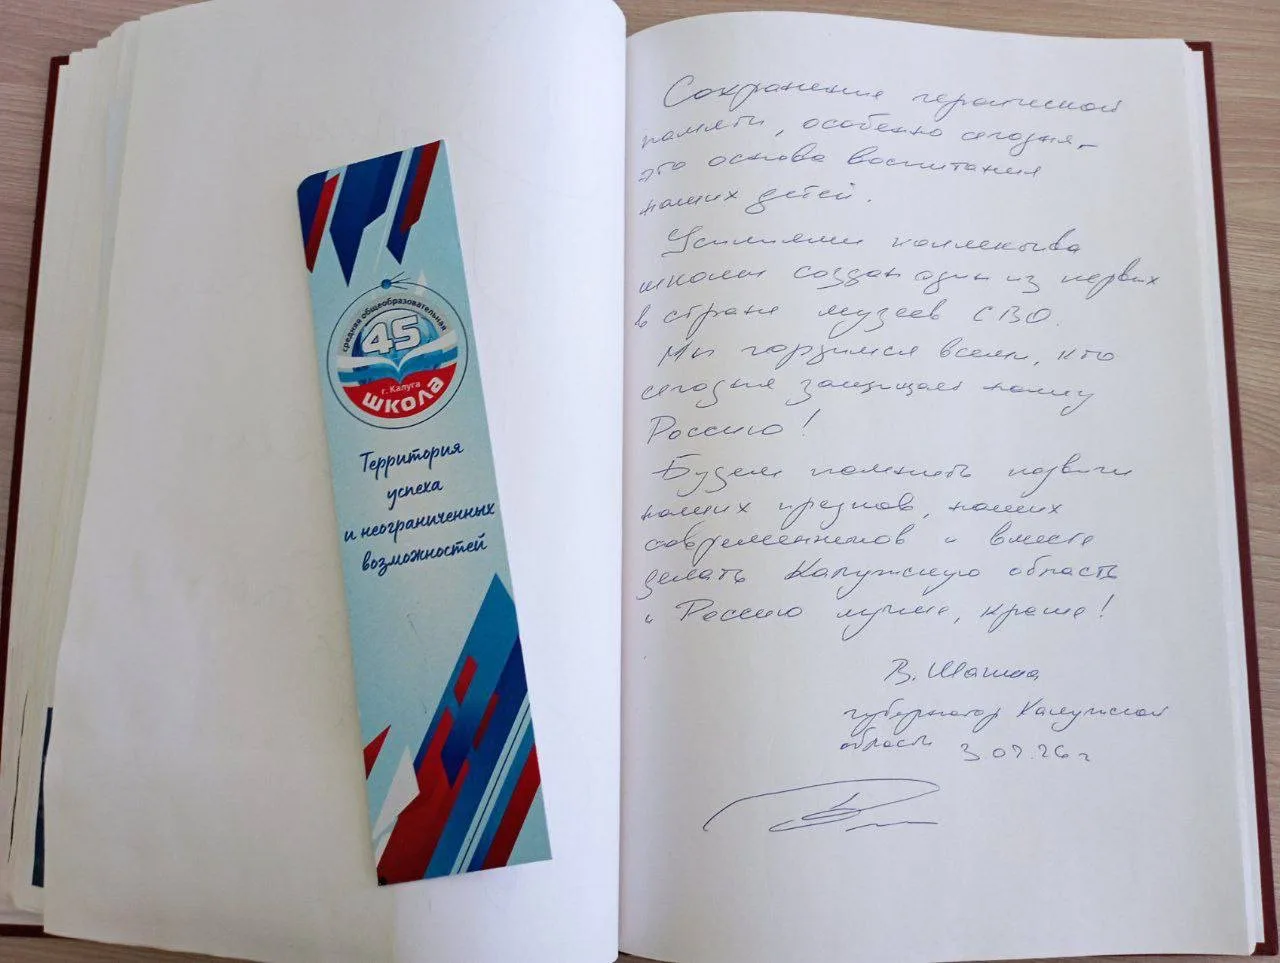 средняя общеобразовательная
45
г. Калуга
школа
Территория
успеха
и неограниченных
возможностей
Сохранение героической
памяти, особенно сегодня, –
это основа воспитания
наших детей.
Усилиями коллектива
школы создан один из первых
в стране музеев СВО.
Мы гордимся всеми, кто
сегодня защищает нашу
Россию!
Будем помнить подвиги
наших предков, наших
современников и вместе
делать Калужскую область
и Россию лучше, краше!
В. Шапша
губернатор Калужской
области